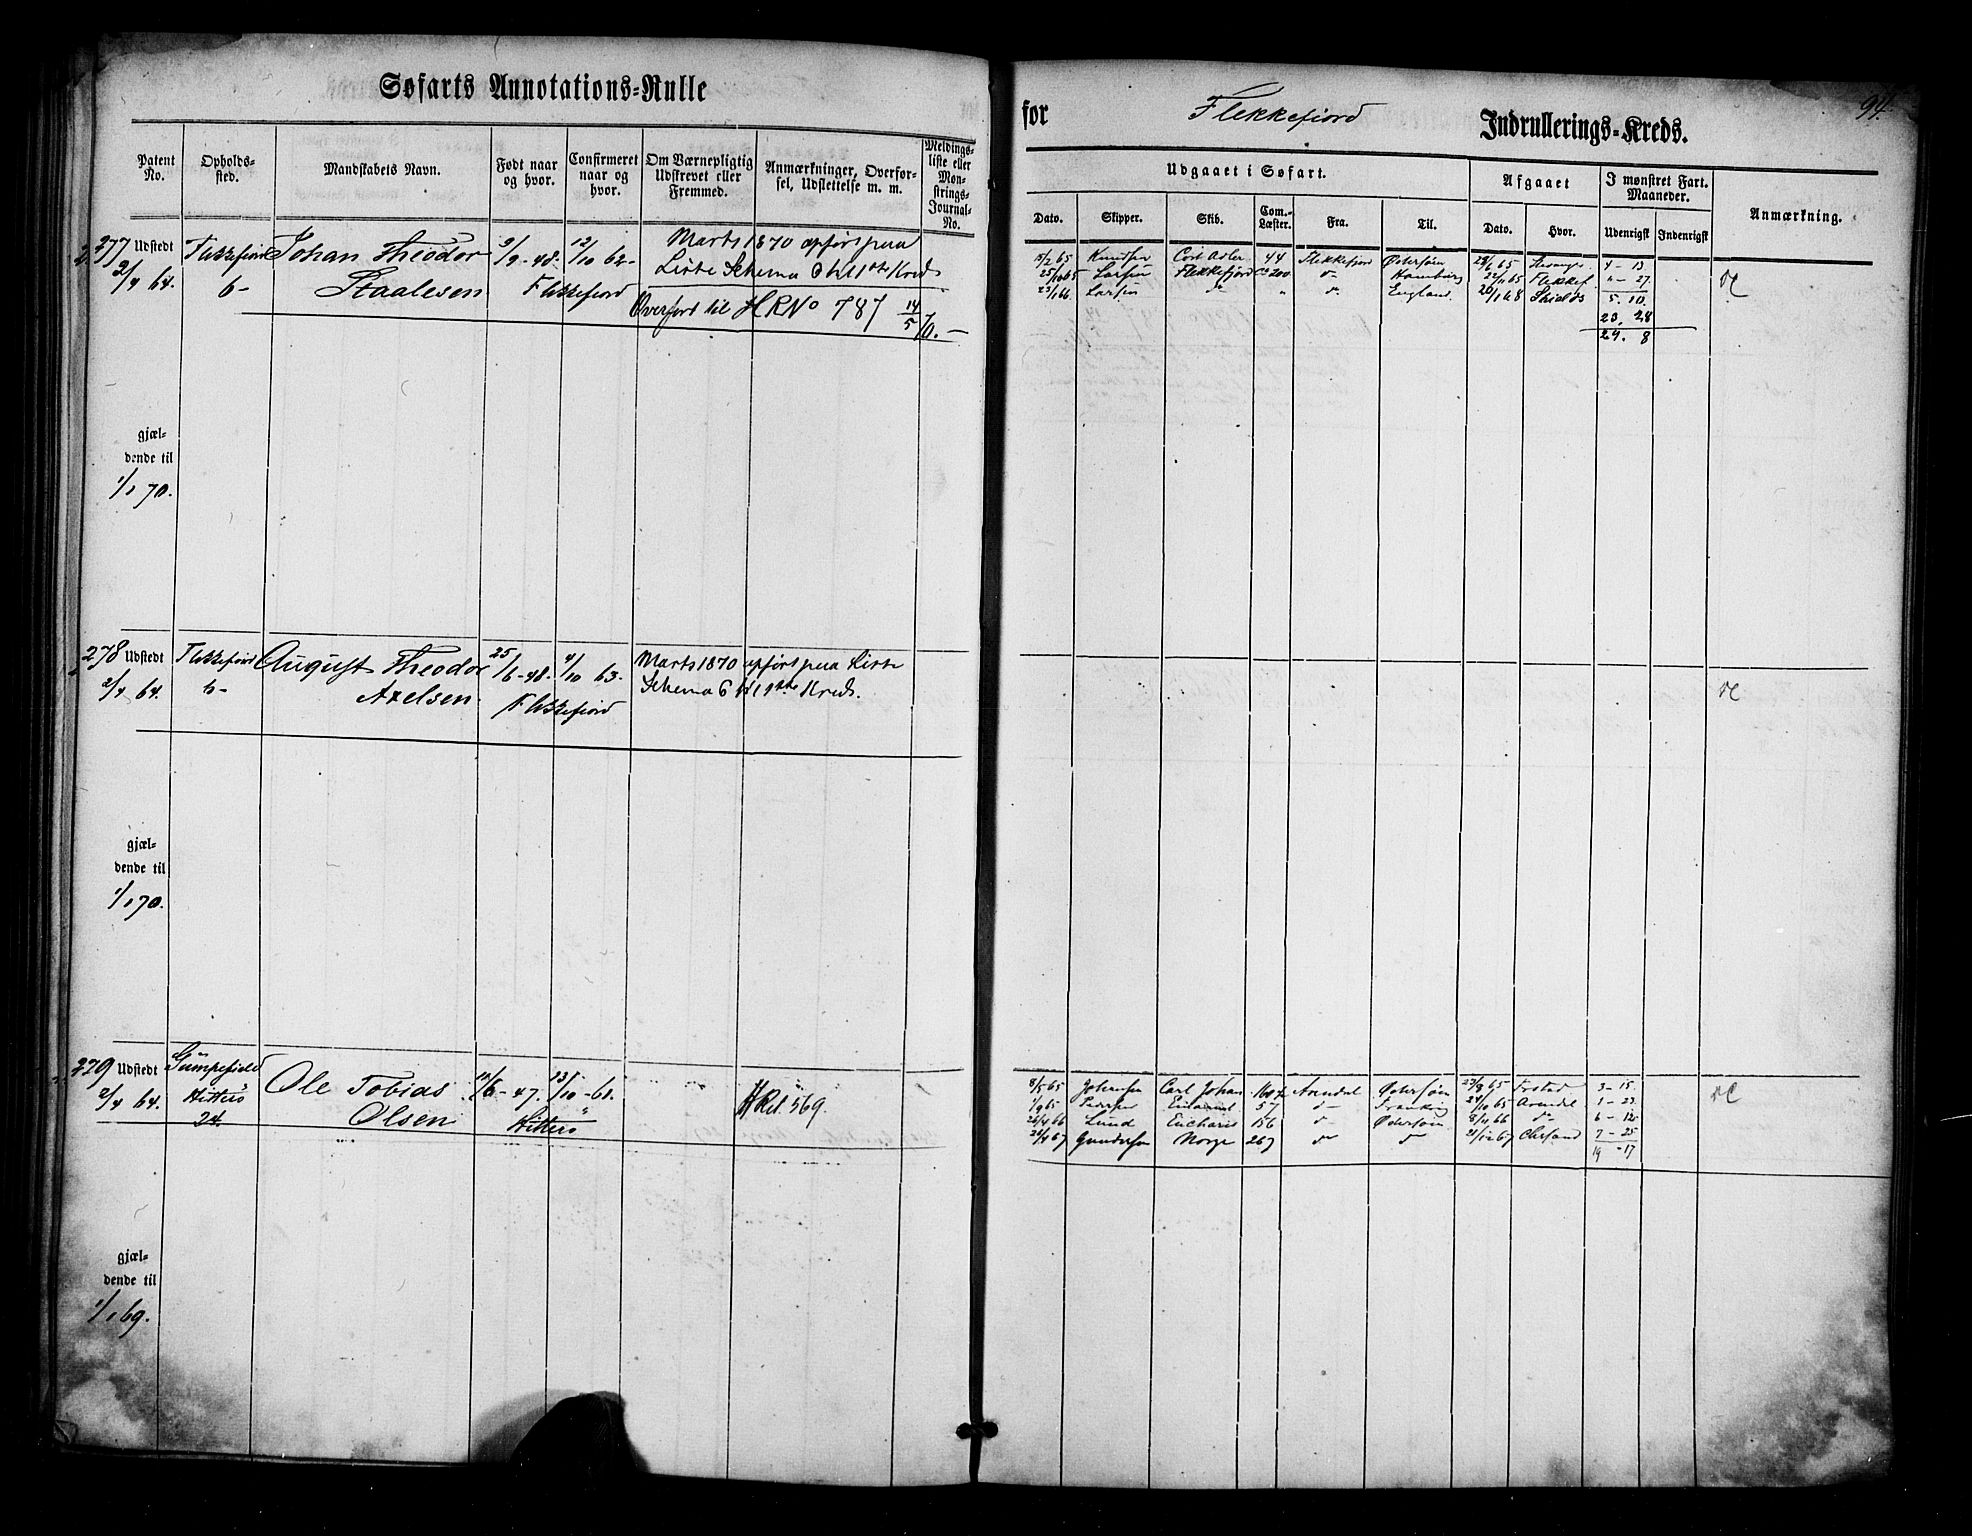 Søfarts Annotations-Rulle
for Flekkefjord Indrullerings-Kreds.
94.
Patent No. Opholdssted. Mandskabets Navn. Født naar og hvor. Confirmeret naar og hvor. Om Værnepligtig Udskrevet eller Fremmed. Anmærkninger, Overførsel, Udslettelse m. m. Meldingsliste eller Mønstrings-Journal-No.
Udgaaet i Søfart. Afgaaet I mønstret Fart. Maaneder. Anmærkning.
Dato. Skipper. Skib. Com.-Læster. Fra. Til. Dato. Hvor. Udenrigsk Indenrigsk
277 Udstedt Flekkefjord Johan Theodor 9/9 - 48. 12/10 62- Marts 1870 opført paa
2/4 64. 6- Staalesen Flekkefjord Liste Schema 6 til 1ste Kreds
Overført til HRNo 787 14/5 70.-
15/2 65 Knudsen Cort Adler 44 Flekkefjord Østersøen 28/6 65 4 - 13.
25/10 65 Larsen Flekkefjord 200 d- Hamburg 22/11 65 Flekkef - 27.
Larsen d- " d- England 20/1 68 Shields 5. 10.
23, 28
24. 8
gjæl-
dende til
1/1 70.
278 Udstedt Flekkefjord August Theodor 25/6 - 48. 4/10 63- Marts 1870 opført paa Liste
2/4 64. 6- Axelsen Flekkefjord Schema 6 til 1ste Kreds.
gjæl-
dende til
1/1 70.
279 Udstedt Ole Tobias - 47. - 61.
2/4 64. Hitterø Olsen Hitterø HRul. 569.
24.
8/5 65 Johan Carl Johan Arendal Østersøen 23/8 65 3 - 15.
1/9 65 57 d- 24/10 65 Arendal 1 - 23.
26/4 66 Lund Eucharis 156 d- Østersøen 8/11 66 d- 6 - 12
26/4 67 Gundersen Norge 267 d- d- 21/12 67 Chrsand 7 - 25
19 - 17
gjæl-
dende til
1/1 69.